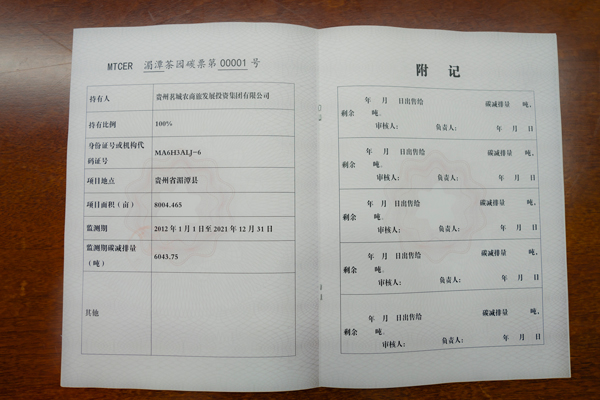 MTCER 湄潭茶园碳票第 00001 号
持有人 贵州茗城农商旅发展投资集团有限公司
持有比例 100%
身份证号或机构代
码证号 MA6H3ALJ-6
项目地点 贵州省湄潭县
项目面积（亩） 8004.465
监测期 2012 年 1 月 1 日至 2021 年 12 月 31 日
监测期碳减排量
（吨） 6043.75
其他
附 记
年 月 日出售给 碳减排量 吨，
剩余 吨。
审核人： 负责人： 年 月 日
年 月 日出售给 碳减排量 吨，
剩余 吨。
审核人： 负责人： 年 月 日
年 月 日出售给 碳减排量 吨，
剩余 吨。
审核人： 负责人： 年 月 日
年 月 日出售给 碳减排量 吨，
剩余 吨。
审核人： 负责人： 年 月 日
年 月 日出售给 碳减排量 吨，
剩余 吨。
审核人： 负责人： 年 月 日